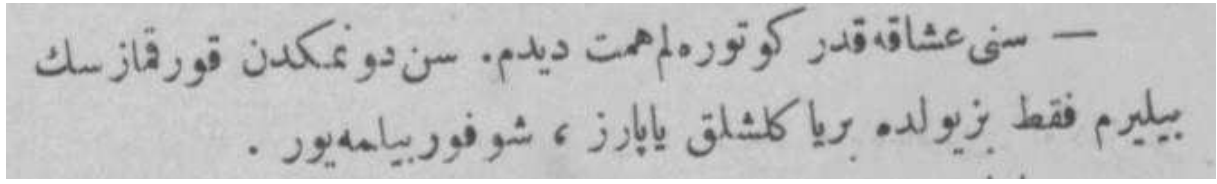 — سنی عشاقه قدر كوتوره‌لم همت ديدم. سن دونمكدن قورقمازسك
بيليرم فقط بز يولده بر ياكلشلق ياپارز ، شوفور بيلمه‌يور .